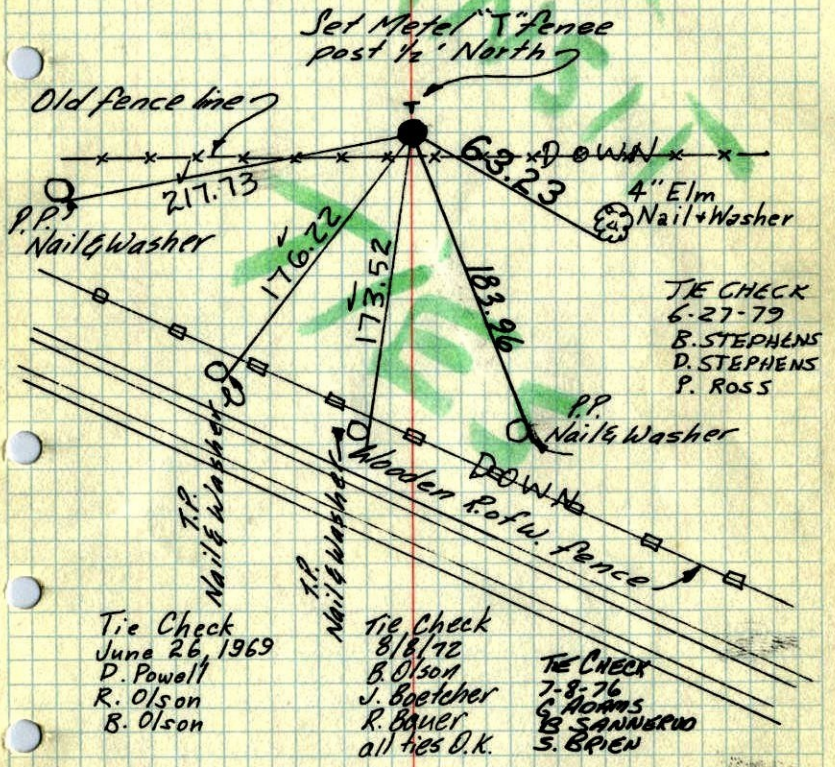 Set Metel "T" fence
post 1/2' North
T
Old fence line
63.23
DOWN
217.73
4" Elm
Nail + Washer
P.P.
Nail & Washer
176.22
173.52
183.96
TIE CHECK
6-27-79
B. STEPHENS
D. STEPHENS
P. ROSS
TIES
P.P.
Nail & Washer
DOWN
Wooden R.ofW. fence
T.P.
Nail & Washer
T.P.
Nail & Washer
Tie Check
June 26, 1969
D. Powell
R. Olson
B. Olson
Tie Check
8/8/72
B. Olson
J. Boetcher
R. Bauer
all ties O.K.
TIE CHECK
7-8-76
G ADAMS
B SANNERUD
S. BRIEN